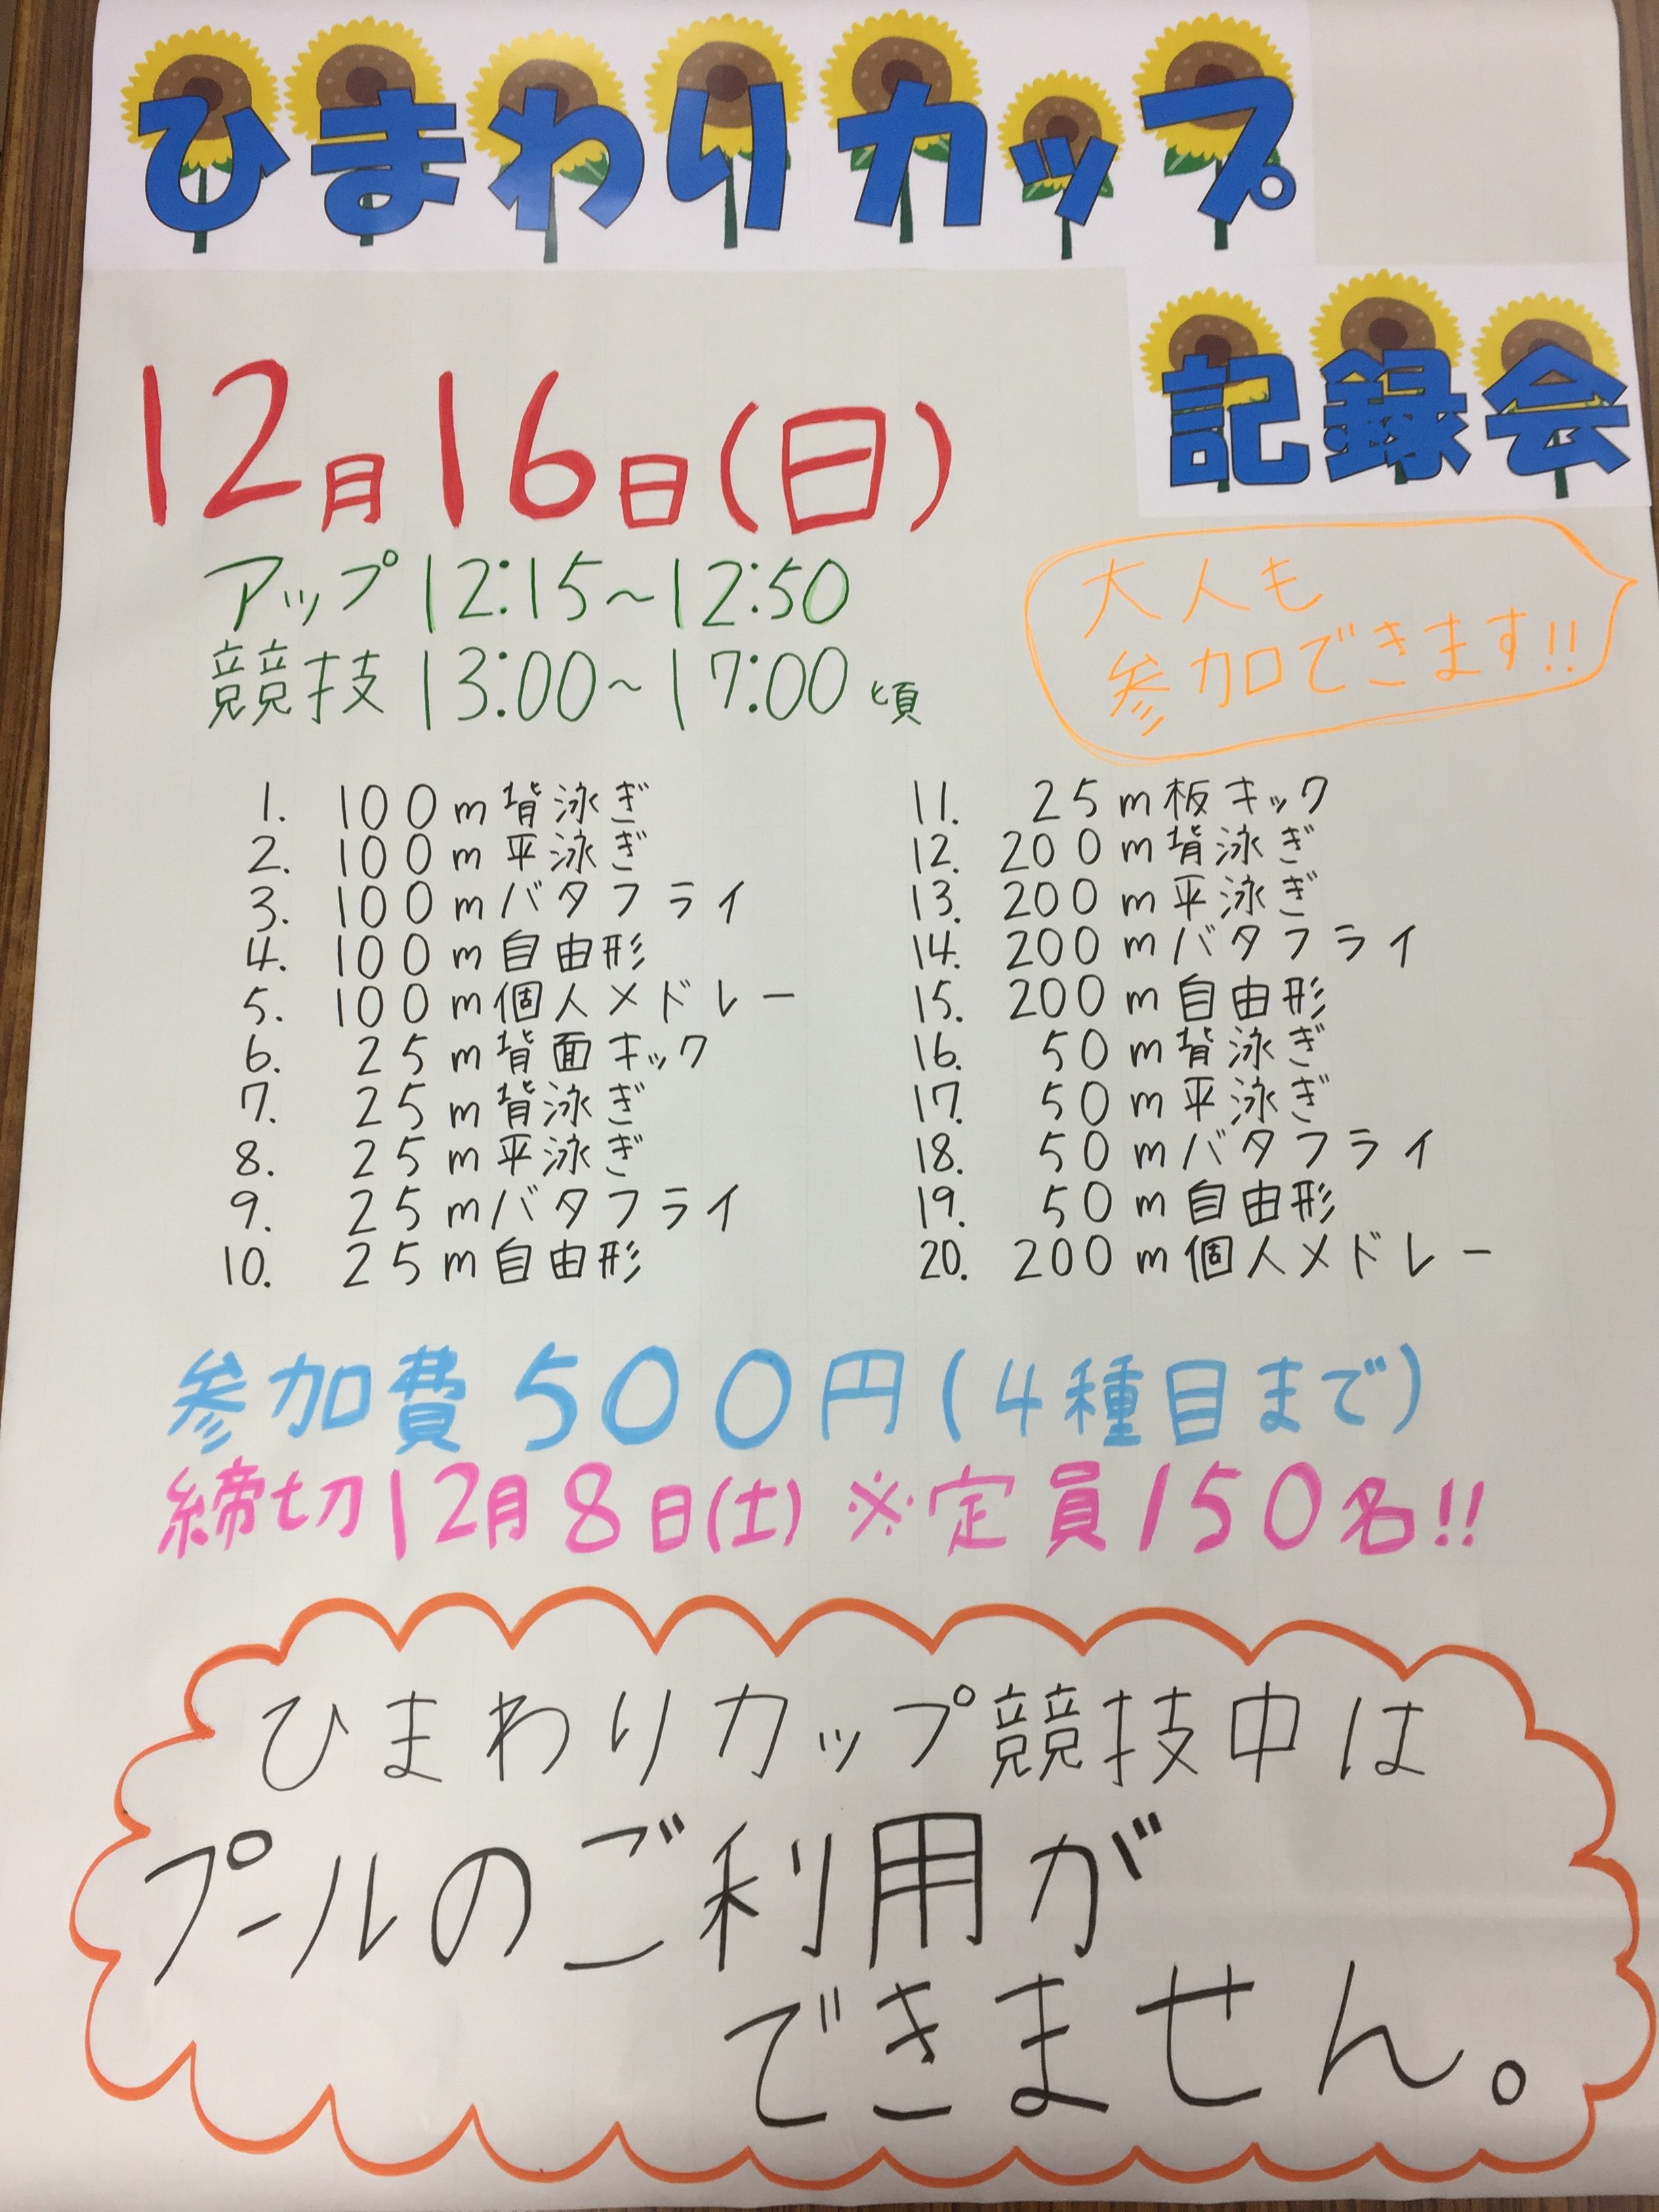 ひまわりカップ
記録会
12月16日(日)
アップ 12:15～12:50
競技 13:00～17:00頃
大人も
参加できます!!
1. 100m背泳ぎ
2. 100m平泳ぎ
3. 100mバタフライ
4. 100m自由形
5. 100m個人メドレー
6. 25m背面キック
7. 25m背泳ぎ
8. 25m平泳ぎ
9. 25mバタフライ
10. 25m自由形
11. 25m板キック
12. 200m背泳ぎ
13. 200m平泳ぎ
14. 200mバタフライ
15. 200m自由形
16. 50m背泳ぎ
17. 50m平泳ぎ
18. 50mバタフライ
19. 50m自由形
20. 200m個人メドレー
参加費 500円(4種目まで)
締切12月8日(土) ※定員150名!!
ひまわりカップ競技中は
プールのご利用が
できません。